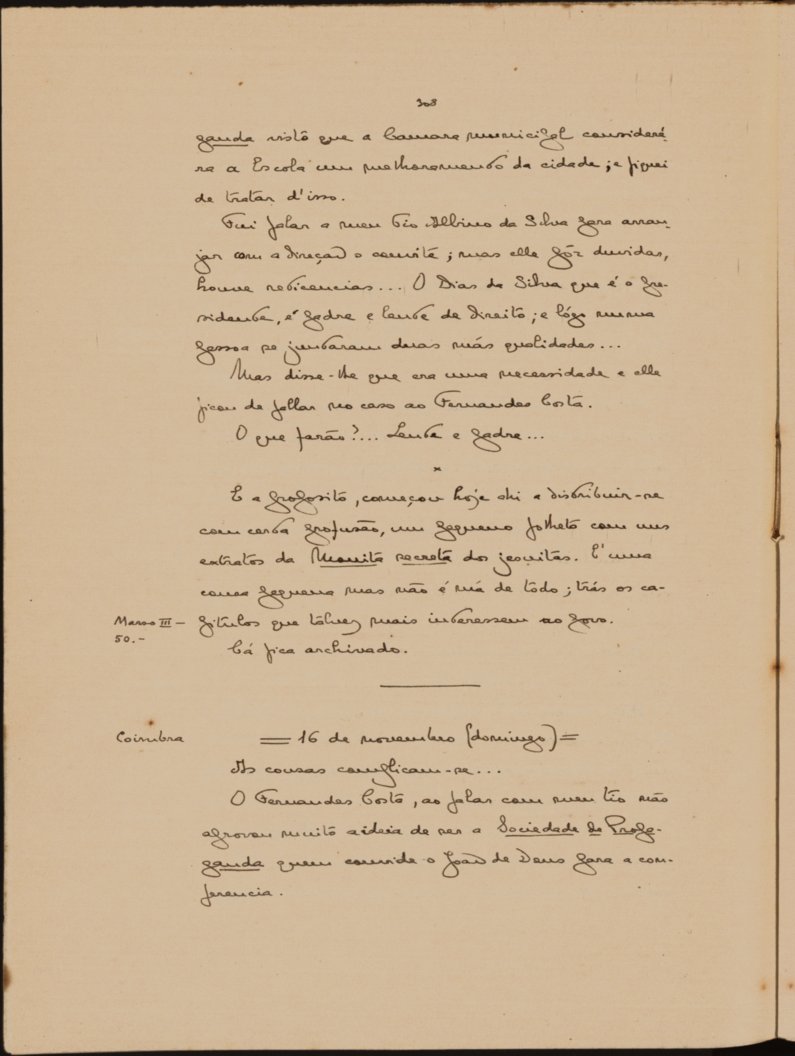 308
ganda visto que a Camara municipal considerá-
ra a Escola um melhoramento da cidade; e fiquei
de tratar d'isso.
Fui falar a meu tio Albino da Silva para arran-
jar com a direcção o convite; mas elle pôz duvidas,
houve reticencias... O Dias da Silva que é o pre-
sidente, é padre e lente de Direito; e lógo numa
pessoa se juntaram duas más qualidades...
Mas disse-lhe que era uma necessidade e elle
ficou de fallar no caso ao Fernandes Costa.
O que farão?... Lente e padre...
*
E a proposito, começou hoje ahi a distribuir-se
com certa profusão, um pequeno folheto com uns
extratos da Monita secreta dos jesuitas. E' uma
cousa pequena mas não é má de todo; trás os ca-
Masso III –
50.–
pitulos que tálvez mais interessem ao povo.
Cá fica archivado.
Coimbra
= 16 de novembro (domingo) =
As cousas complicam-se...
O Fernandes Costa, ao falar com meu tio não
aprovou muito a ideia de ser a Sociedade de Propa-
ganda quem convide o João de Deus para a con-
ferencia.